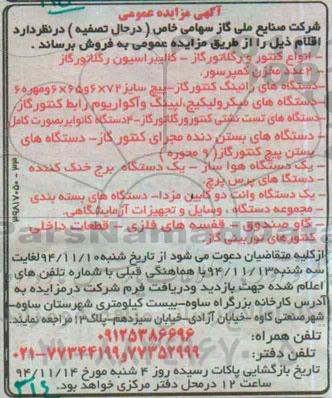 آگهی مزایده عمومی
شرکت صنایع ملی گاز سهامی خاص ( درحال تصفیه ) درنظردارد
اقلام ذیل را از طریق مزایده عمومی به فروش برساند .
- انواع کنتور و رگلاتورگاز - کالیبراسیون رگلاتورگاز
۲عدد مخزن کمپرسور.
دستگاه های رانینگ کنتورگاز-پیچ سایز۷۲×۶و۶۵×۶ومهره۶
دستگاه های میکرولیکیج،لیپنگ وآکواریوم رابط کنتورگاز
دستگاه های تست نشتی کنتورورگلاتورگاز-۴دستگاه کانوایربصورت کامل
دستگاه های بستر دنده مجرای کنتورگاز- دستگاه های
بستن پیچ کنتورگاز( ۹ محوره )
یک دستگاه هوا ساز - یک دستگاه برج خنک کننده
دستگاه های پرس پرچ.
یک دستگاه وانت دو کابین مزدا- دستگاه های بسته بندی
- مجموعه دستگاه ، وسایل و تجهیزات آزمایشگاهی.
- گاو صندوق - قفسه های فلزی - قطعات داخلی
کنتور های توربینی گاز
ازکلیه متقاضیان دعوت می شود از تاریخ شنبه۹۴/۱۱/۱۰لغایت
سه شنبه۹۴/۱۱/۱۳ با هماهنگی قبلی با شماره تلفن های
اعلام شده جهت بازدید ودریافت فرم شرکت درمزایده به
آدرس کارخانه بزرگراه ساوه-بیست کیلومتری شهرستان ساوه-
شهرصنعتی کاوه -خیابان آزادی-خیابان سیزدهم-پلاک۱۳ مراجعه نمایند.
تلفن همراه: ۰۹۱۲۵۳۸۶۶۹۶
تلفن دفتر: ۷۷۳۵۲۹۹۹و۷۷۳۴۴۱۹۹-۰۲۱
تاریخ بازگشایی پاکات رسیده روز ۴ شنبه مورخ ۹۴/۱۱/۱۴
ساعت ۱۲ درمحل دفتر مرکزی خواهد بود.
۳۱۴